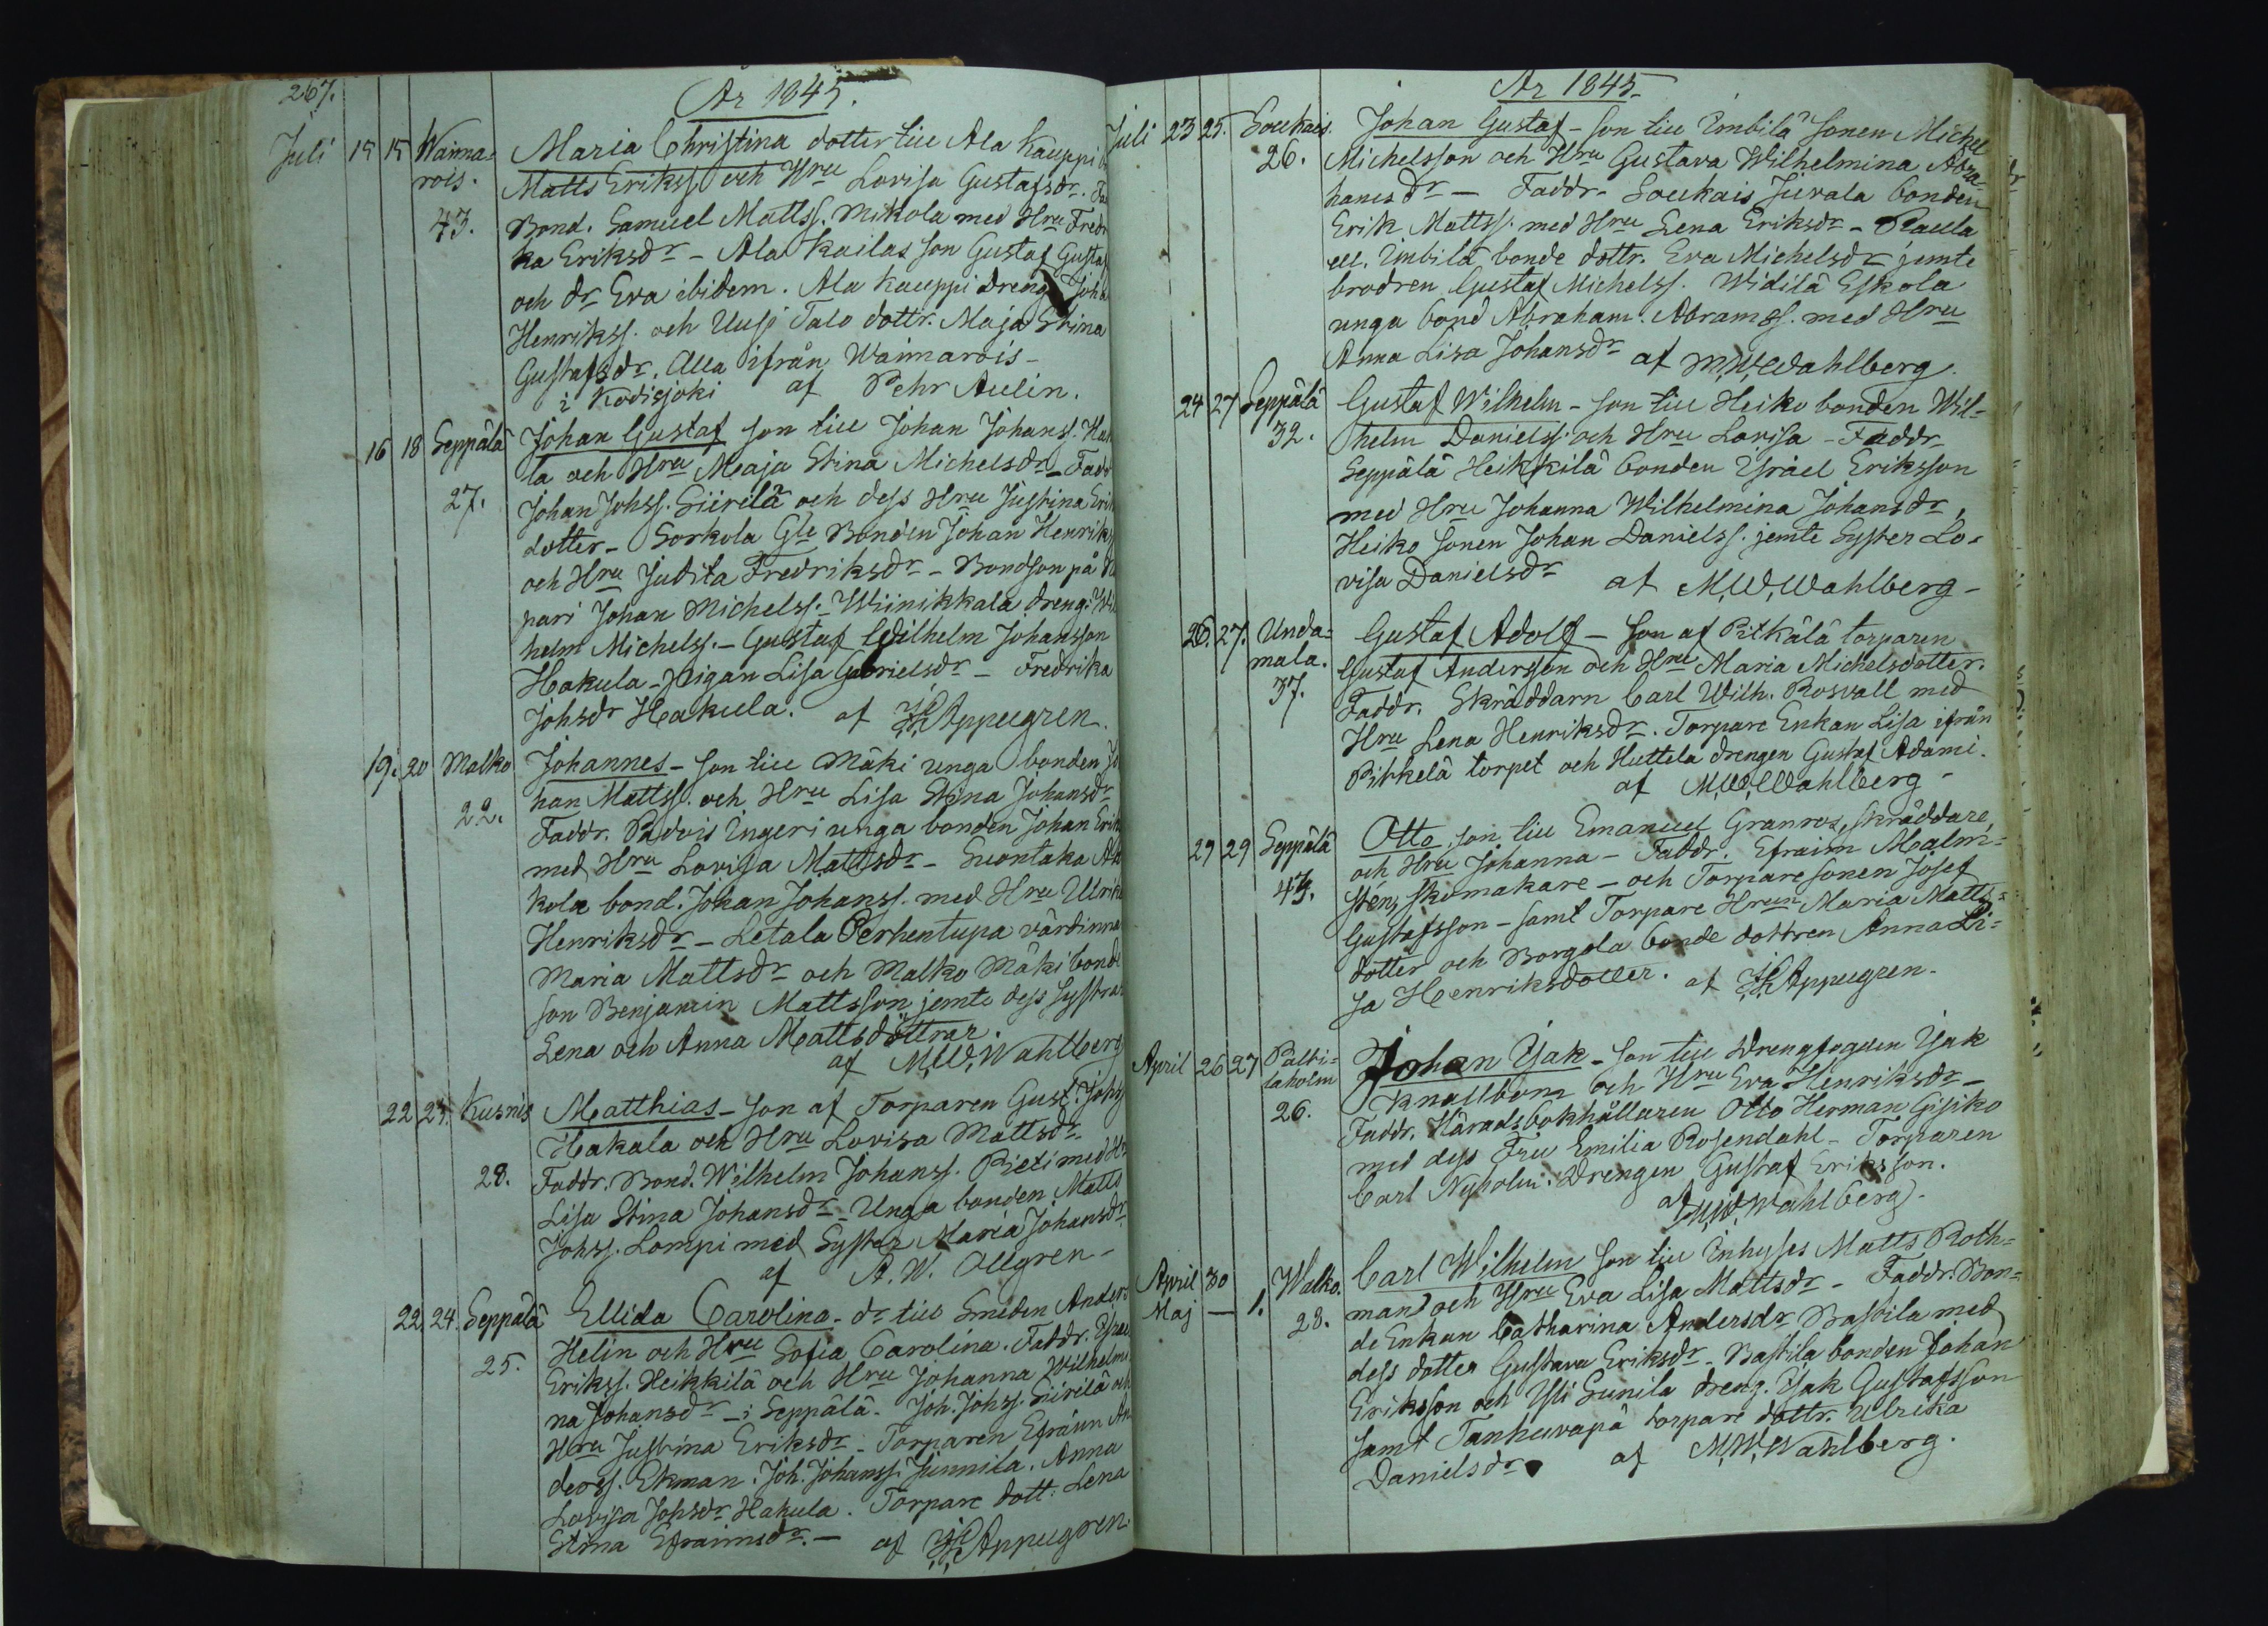 267.
År 1845.
Juli 15 15 Waima=
rois.
43.
Maria Christina dotter till Ala Kauppi
Matts Erikss. och Hru Lovisa Gustafsdr.
Bond. Samuel Mattss. Mikola med Hru Fredri
ka Eriksdr – Ala Kailas son Gustaf Gustaf
och dr Eva ibidem. Ala Kauppi dreng Joh
Henrikss. och Uusi Talo dottr. Maja Stina
Gustafsdr. Alla ifrån Waimarois –
i Kodisjoki af Pehr Aulin.
16 18 Seppälä
27.
Johan Gustaf son till Johan Johanss.
la och Hru Maja Stina Michelsdr – Fadd
Johan Johss. Siirilä och dess Hru Justina Erik
dotter – Sorkola Gle Bonden Johan Henriks
och Hru Judita Fredriksdr – Bondson på
pari Johan Michelss. – Wiinikkala dreng. Wil
helm Michelss. – Gustaf Wilhelm Johansson
Hakula – Pigan Lisa Gabrielsdr – Fredrika
Johsdr Hakula. af Appelgren.
19. 20 Malko
22.
Johannes – son till Mäki unga bonden Jo
han Mattss. och Hru Lisa Stina Johansdr
Faddr. Padvis Ingeri unga bonden Johan Erik
med Hru Lovisa Mattsdr – Suontaka
kola bond. Johan Johanss. med Hru Ulrika
Henriksdr – Letala Perhentupa värdinna
Maria Mattsdr och Malko Mäki bonde
son Benjamin Mattsson jemte dess systrar
Lena och Anna Mattsdöttrar.
af M.W. Wahlberg
22 23. Kusnis
28.
Matthias – son af Torparen Gust. Johss
Hakala och Hru Lovisa Mattsdr.
Faddr. Bond. Wilhelm Johanss. Pieti med Hr
Lisa Stina Johansdr – Unga bonden Matts
Johss. Lompi med Syster Maria Johansdr
af A. W. Allgren –
22. 24. Seppälä
25.
Ellida Carolina – dr till Smeden Anders
Helin och Hru Sofia Carolina. Faddr. Israel
Erikss. Heikkilä och Hru Johanna Wilhelmi
na Johansdr – i Seppälä. Joh. Johss. Siirilä och
Hru Justina Eriksdr – Torparen Efraim An
derss. Ekman. Joh. Johanss. Junnila. Anna
Lovisa Johsdr Hakula. Torpare dott. Lena
Stina Efraimsdr. – af Appelgren
År 1845.
Juli 23 25. Soukais.
26.
Johan Gustaf – son till Imbilä sonen Michel
Michelsson och Hru Gustava Wilhelmina Abra=
hamsdr – Faddr. Soukais Juvala bonden
Erik Mattss. med Hru Lena Eriksdr – Raula
ell. Imbilä bonde dottr. Eva Michelsdr jemte
brodren Gustaf Michelss. Widilä Eskola
unga bond Abraham Abramss. med Hru
Anna Lisa Johansdr af M.W. Wahlberg.
24 27 Seppälä
32.
Gustaf Wilhelm – son till Heiko bonden Wil=
helm Danielss. och Hru Lovisa – Faddr
Seppälä Heikkilä bonden Israel Eriksson
med Hru Johanna Wilhelmina Johansdr,
Heiko sonen Johan Danielss. jemte Syster Lo=
visa Danielsdr af M.W. Wahlberg –
26. 27. Unda=
mala.
37.
Gustaf Adolf – son af Pitkälä torparen
Gustaf Andersson och Hru Maria Michelsdotter.
Faddr. Skräddarn Carl Wilh. Rosvall med
Hru Lena Henriksdr. Torpare Enkan Lisa ifrån
Pitkelä torpet och Huttela drengen Gustaf Adami.
af M.W. Wahlberg –
29 29 Seppälä
43.
Otto, son till Emanuel Granros, skräddare,
och Hru Johanna – Faddr. Efraim Malm=
stén, skomakare – och Torpare sonen Josef
Gustafsson – samt Torpare Hrun Maria Matts=
dotter och Borgola bonde dottren Anna Li=
sa Henriksdotter. af Appelgren –
April 26 27 Palti=
laholm
26.
Johan Isak – son till Drengfogden Isak
Knallbom och Hru Eva Henriksdr –
Faddr. Häradsbokhållaren Otto Herman Gisiko
med dess Fru Emilia Rosendahl – Torparen
Carl Nyholm. Drengen Gustaf Eriksson.
af M.W. Wahlberg –
April 30
Maj – 1. Walko.
28.
Carl Wilhelm son till Inhyses Matts Roth=
man och Hru Eva Lisa Mattsdr – Faddr. Bon=
de Enkan Catharina Andersdr Bastila med
dess dotter Gustava Eriksdr – Bastila bonden Johan
Eriksson och Yli Sunila dreng. Isak Gustafsson
samt Tanhuvapä torpare dottr. Ulrika
Danielsdr af M.W. Wahlberg.